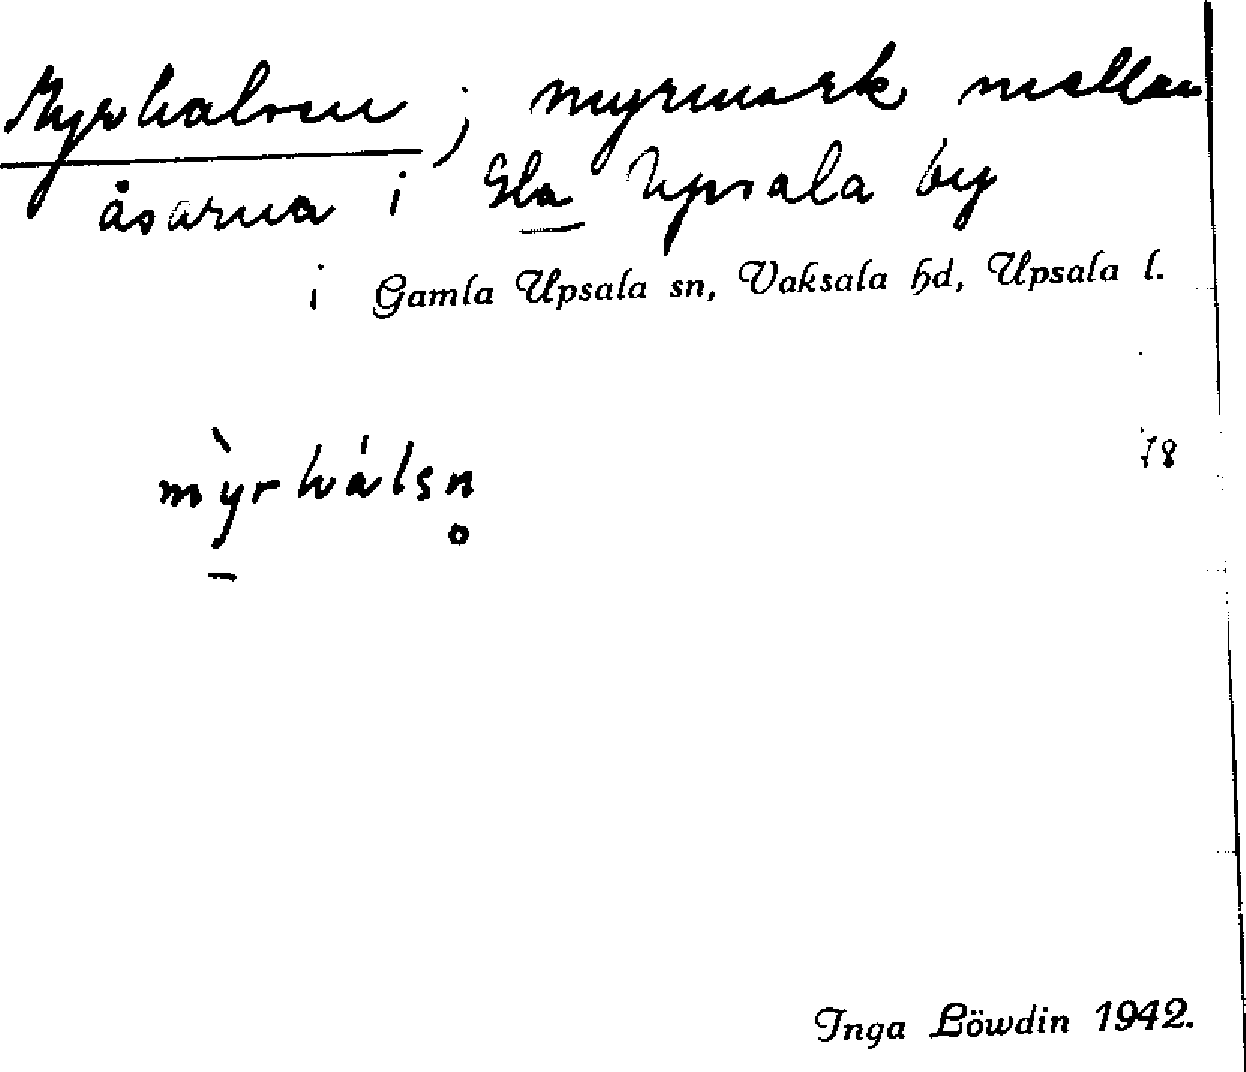 Myrhalsen; myrmark mellan
åsarna i Gla Upsala by
i Gamla Upsala sn, Vaksala hd, Upsala l.
78
Inga Löwdin 1942.